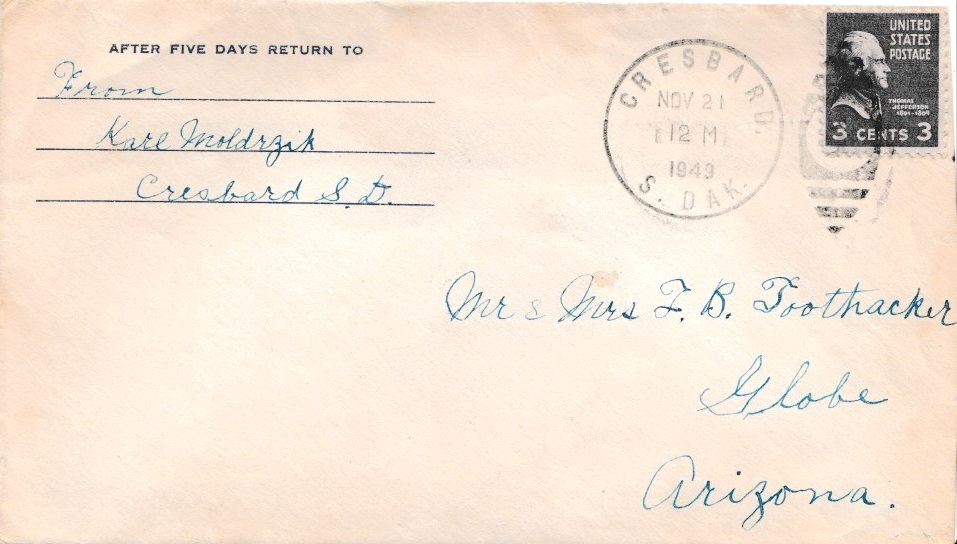 AFTER FIVE DAYS RETURN TO
From
Karl Moldrzik
Cresbard S.D.
CRESBARD.
NOV 21
12 M
1943
S. DAK.
UNITED
STATES
POSTAGE
THOMAS
JEFFERSON
1801-1809
3 CENTS 3
Mr & Mrs F. B. Toothacker
Globe
Arizona.